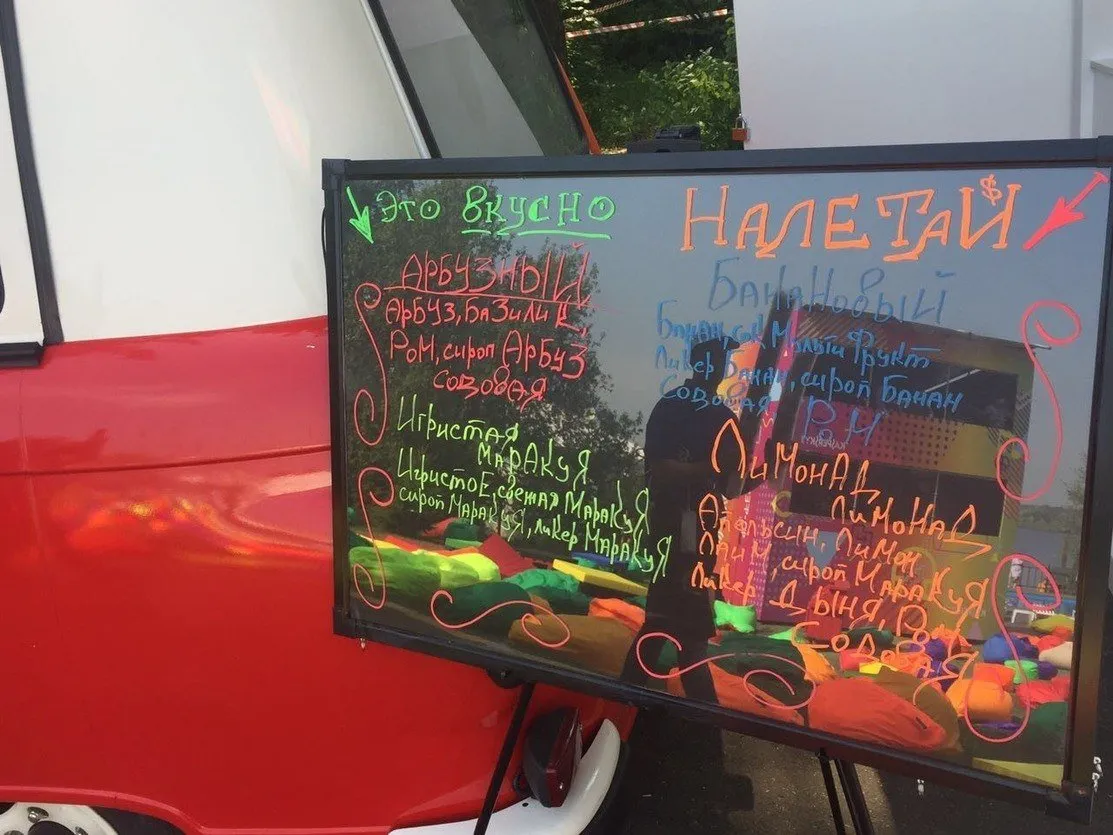 Это вкусно
Арбузный
Арбуз, базилик,
Ром, сироп Арбуз
содовая
Игристая
Маракуя
Игристое, свежая Маракуя
сироп Маракуя, ликер Маракуя
Налетай $
Банановый
Банан, сок Мальти Фрукт
Ликер Банан, сироп Банан
Содовая Ром
Лимонад
Лимонад
Апельсин, Лимон
Лайм, сироп Маракуя
Ликер Дыня, Ром
Содовая